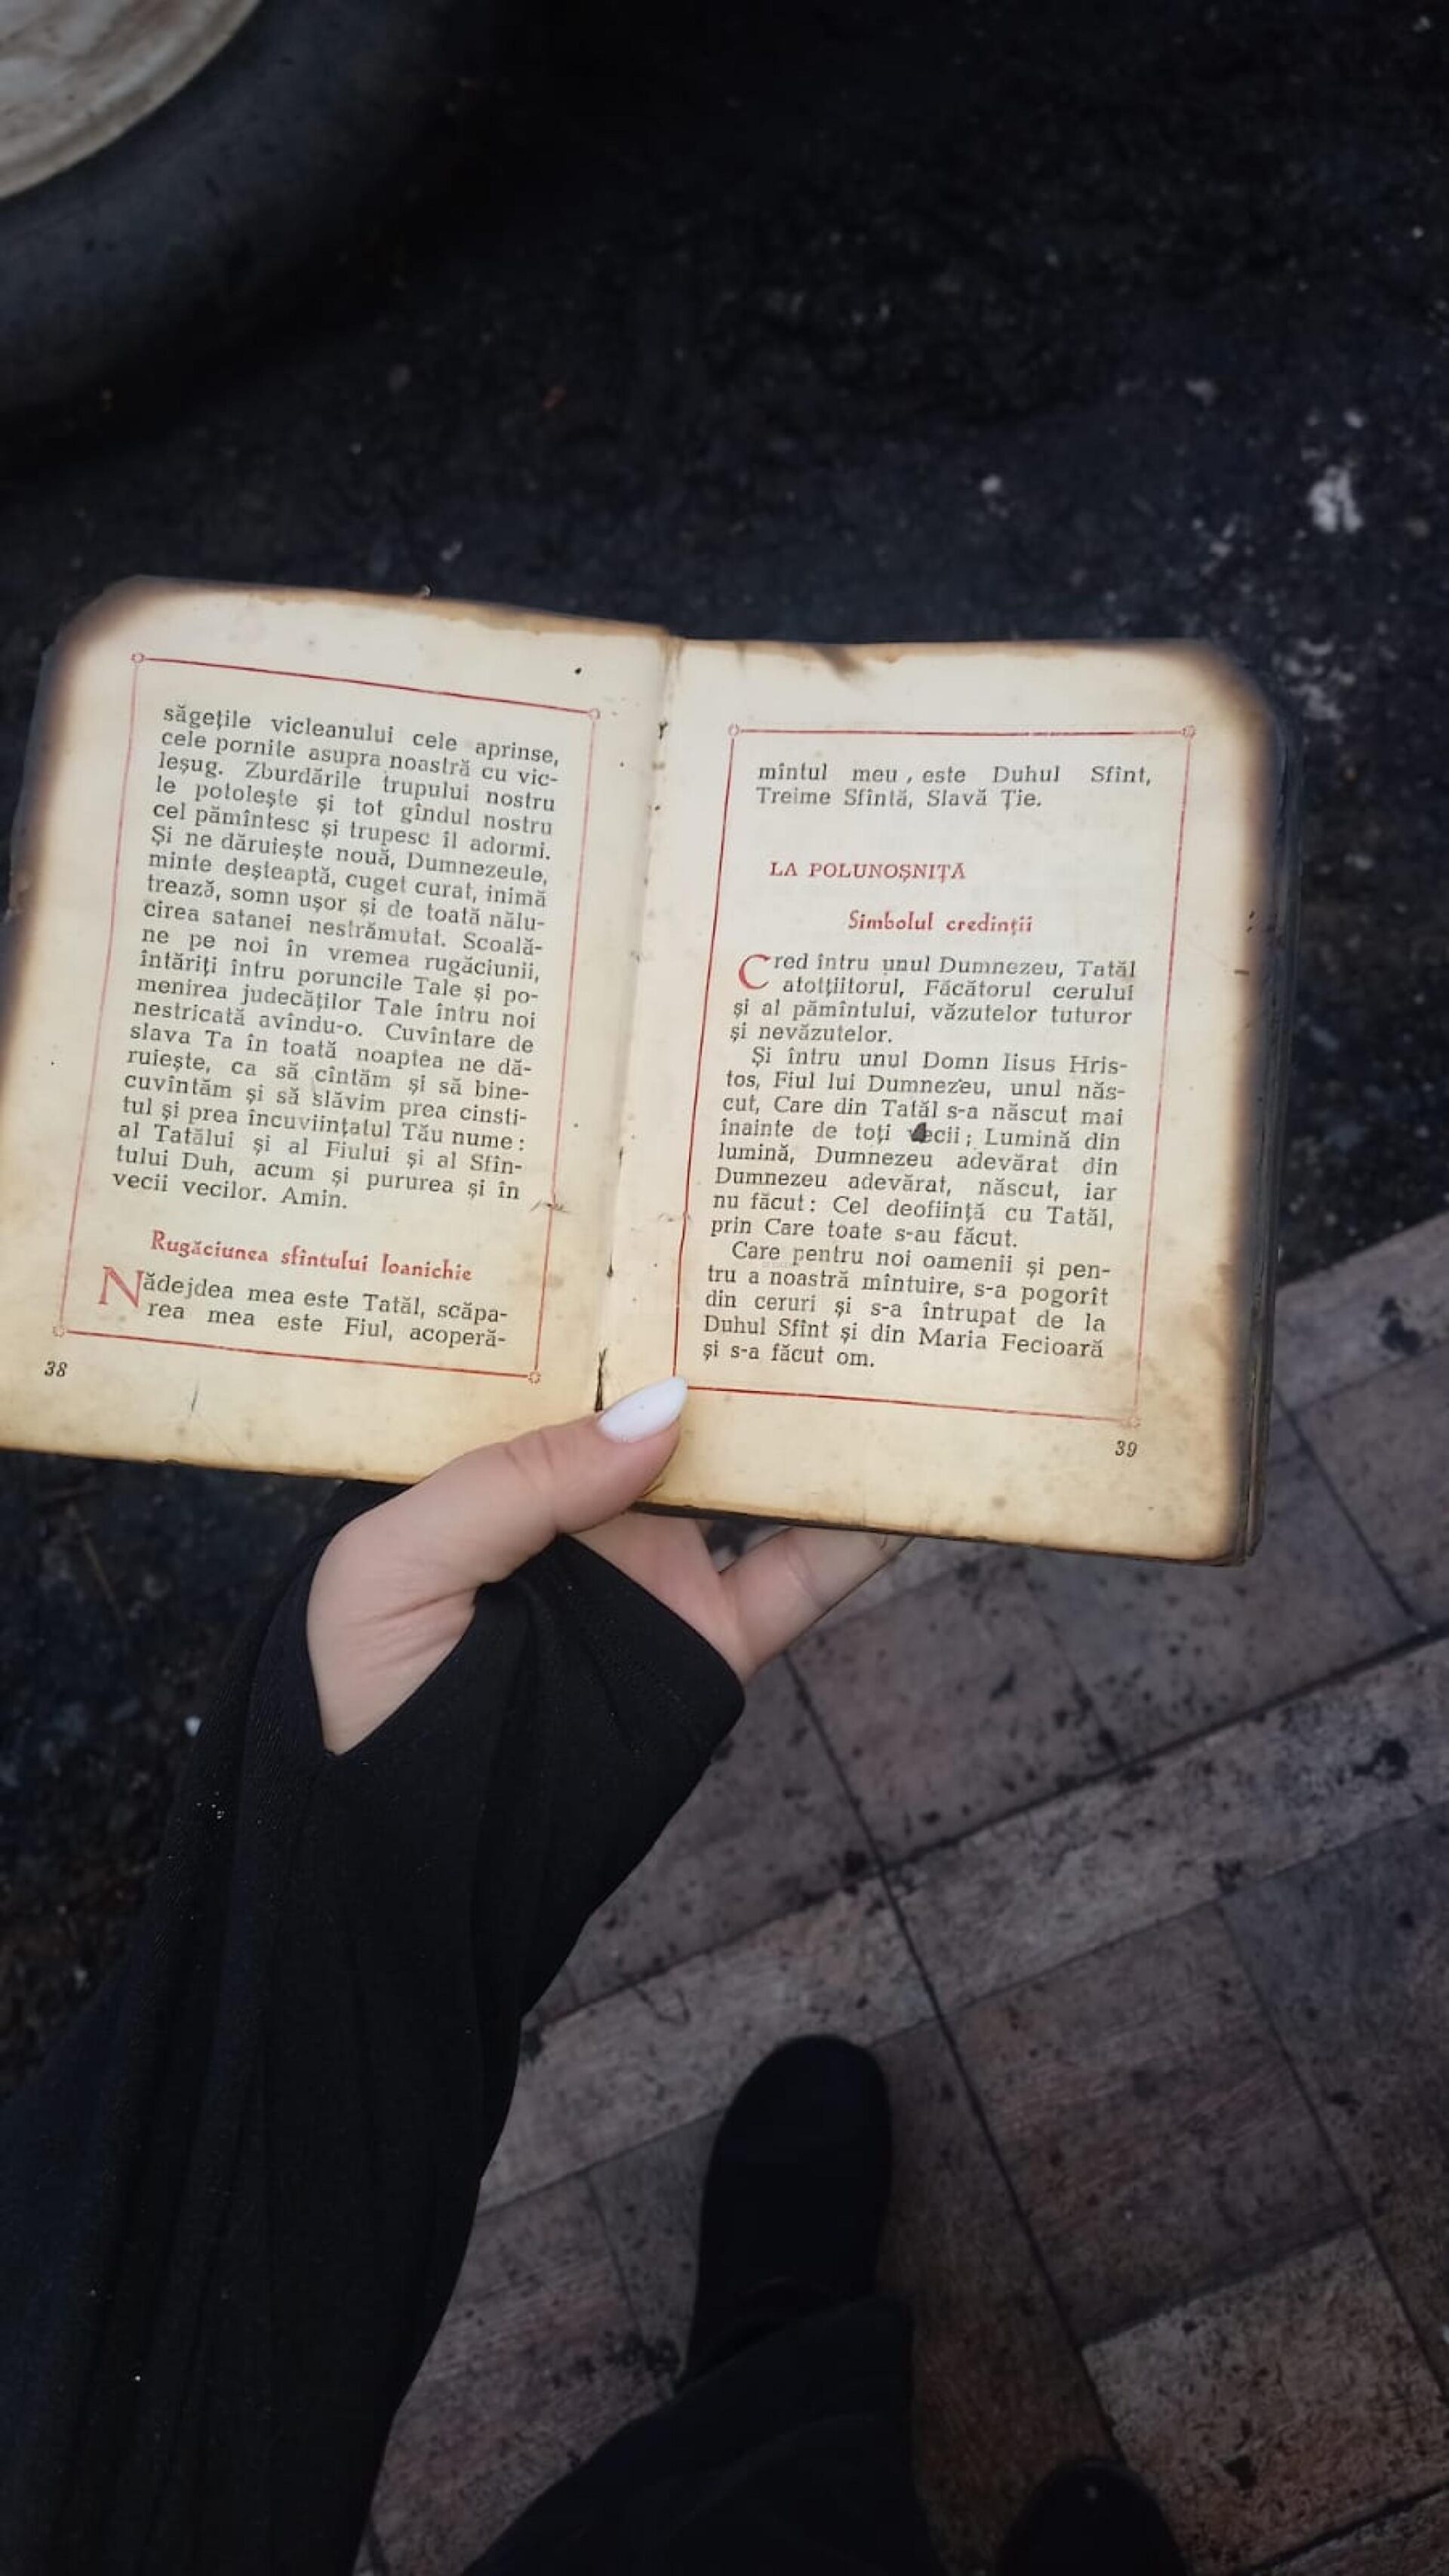 săgețile vicleanului cele aprinse,
cele pornite asupra noastră cu vic-
leșug. Zburdările trupului nostru
le potolește și tot gîndul nostru
cel pămîntesc și trupesc îl adormi.
Și ne dăruiește nouă, Dumnezeule,
minte deșteaptă, cuget curat, inimă
trează, somn ușor și de toată nălu-
cirea satanei nestrămutat. Scoală-
ne pe noi în vremea rugăciunii,
întăriți întru poruncile Tale și po-
menirea judecăților Tale întru noi
nestricată avîndu-o. Cuvîntare de
slava Ta în toată noaptea ne dă-
ruiește, ca să cîntăm și să bine-
cuvîntăm și să slăvim prea cinsti-
tul și prea încuviințatul Tău nume :
al Tatălui și al Fiului și al Sfîn-
tului Duh, acum și pururea și în
vecii vecilor. Amin.
Rugăciunea sfîntului Ioanichie
Nădejdea mea este Tatăl, scăpa-
rea mea este Fiul, acoperă-
38
mîntul meu , este Duhul Sfînt,
Treime Sfîntă, Slavă Ție.
LA POLUNOȘNIȚĂ
Simbolul credinții
Cred întru unul Dumnezeu, Tatăl
atotțiitorul, Făcătorul cerului
și al pămîntului, văzutelor tuturor
și nevăzutelor.
Și întru unul Domn Iisus Hris-
tos, Fiul lui Dumnezeu, unul năs-
cut, Care din Tatăl s-a născut mai
înainte de toți vecii ; Lumină din
lumină, Dumnezeu adevărat din
Dumnezeu adevărat, născut, iar
nu făcut : Cel deoființă cu Tatăl,
prin Care toate s-au făcut.
Care pentru noi oamenii și pen-
tru a noastră mîntuire, s-a pogorît
din ceruri și s-a întrupat de la
Duhul Sfînt și din Maria Fecioară
și s-a făcut om.
39